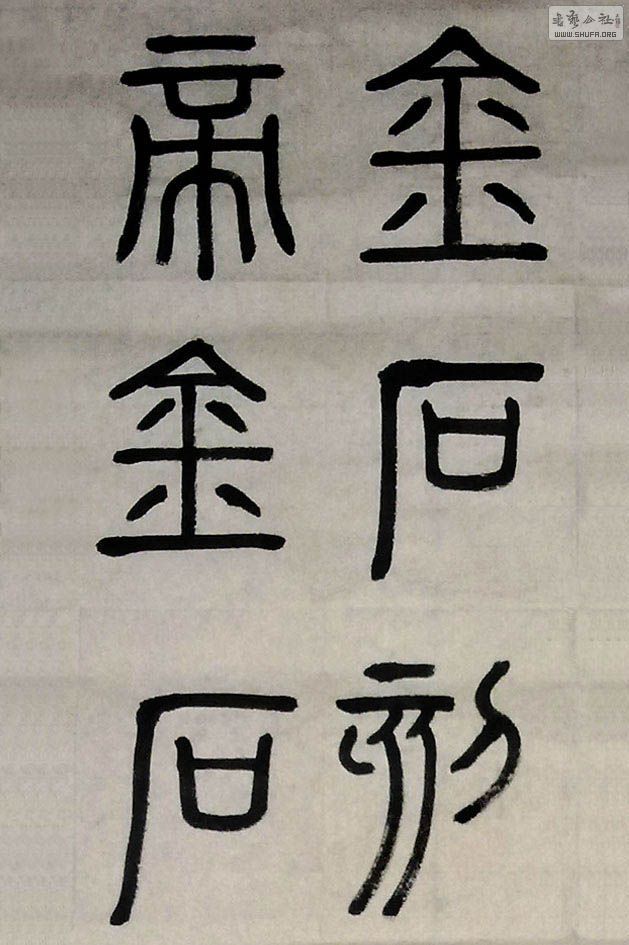 金石刻
帝金石
書藝公社
WWW.SHUFA.ORG